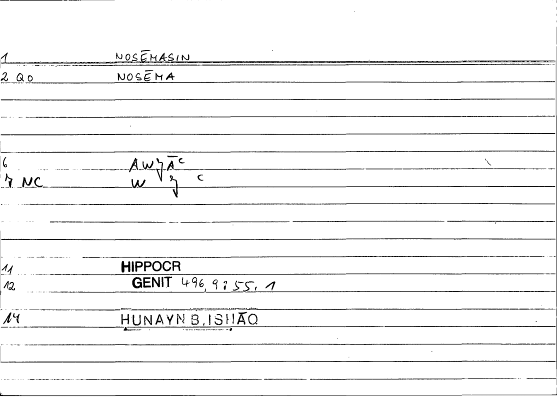 1 NOSĒMASIN
2 QO NOSĒMA
6 AWǧĀᶜ
7 NC W ǧ ᶜ
11 HIPPOCR
12 GENIT 496,9; 55,1
14 HUNAYN B.ISHĀQ